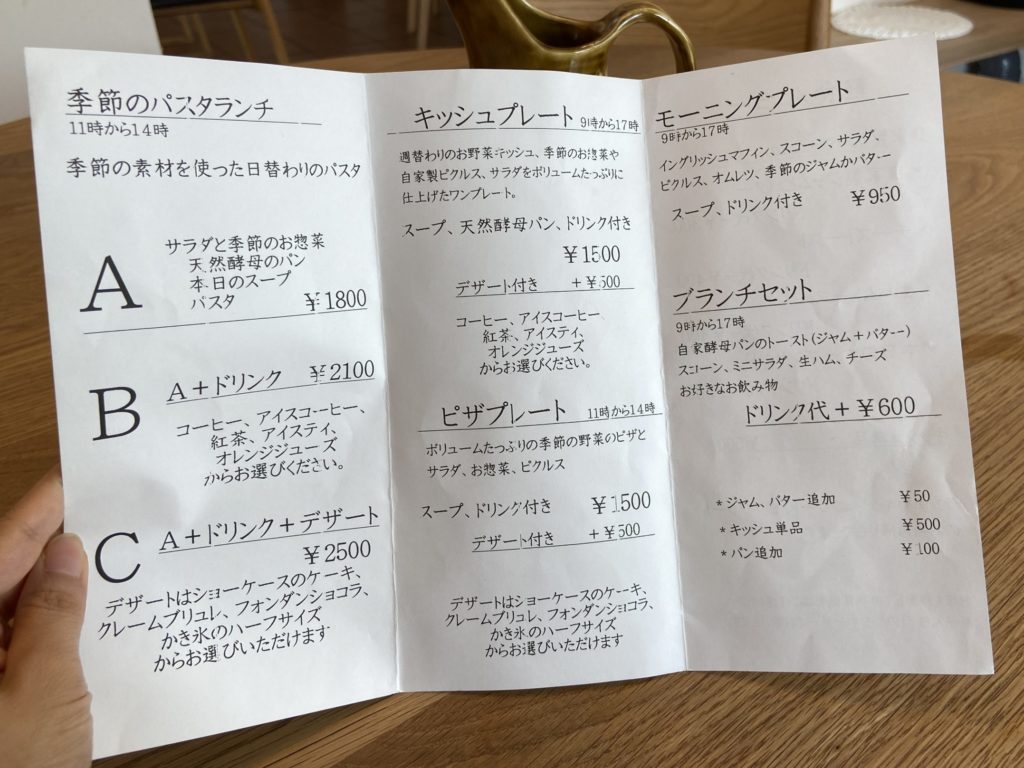 季節のパスタランチ
11時から14時
季節の素材を使った日替わりのパスタ
A
サラダと季節のお惣菜
天然酵母のパン
本日のスープ
パスタ ¥1800
B
A+ドリンク ¥2100
コーヒー、アイスコーヒー、
紅茶、アイスティ、
オレンジジューズ
からお選びください。
C
A+ドリンク+デザート
¥2500
デザートはショーケースのケーキ、
クレームブリュレ、フォンダンショコラ、
かき氷のハーフサイズ
からお選びいただけます
キッシュプレート 9時から17時
週替わりのお野菜キッシュ、季節のお惣菜や
自家製ピクルス、サラダをボリュームたっぷりに
仕上げたワンプレート。
スープ、天然酵母パン、ドリンク付き
¥1500
デザート付き +¥500
コーヒー、アイスコーヒー
紅茶、アイスティ、
オレンジジューズ
からお選びください。
ピザプレート 11時から14時
ボリュームたっぷりの季節の野菜のピザと
サラダ、お惣菜、ピクルス
スープ、ドリンク付き ¥1500
デザート付き +¥500
デザートはショーケースのケーキ、
クレームブリュレ、フォンダンショコラ、
かき氷のハーフサイズ
からお選びいただけます
モーニングプレート
9時から17時
イングリッシュマフィン、スコーン、サラダ、
ピクルス、オムレツ、季節のジャムかバター
スープ、ドリンク付き ¥950
ブランチセット
9時から17時
自家酵母パンのトースト(ジャム+バター)
スコーン、ミニサラダ、生ハム、チーズ
お好きなお飲み物
ドリンク代+¥600
*ジャム、バター追加 ¥50
*キッシュ単品 ¥500
*パン追加 ¥100